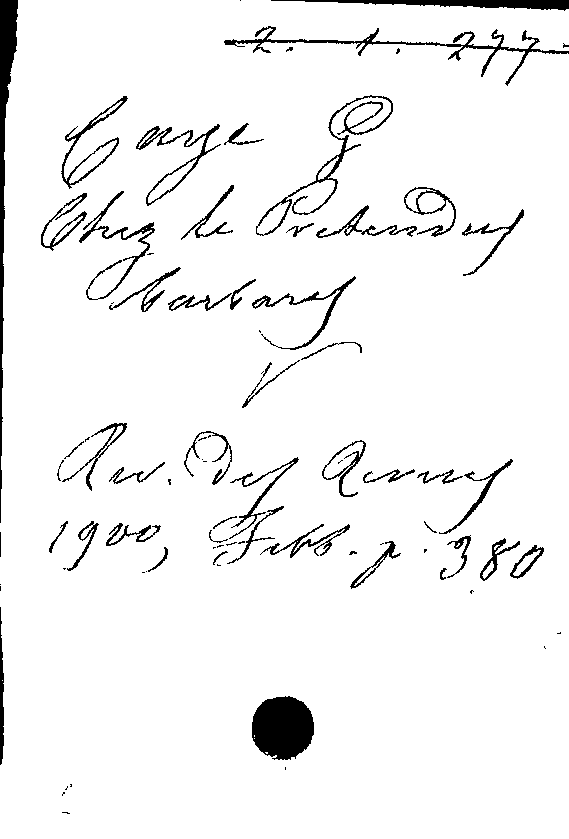 2. 1. 277
Carge G
Chez le Pretendus
barbares
Rev. des Revues
1900, Febb. p. 380